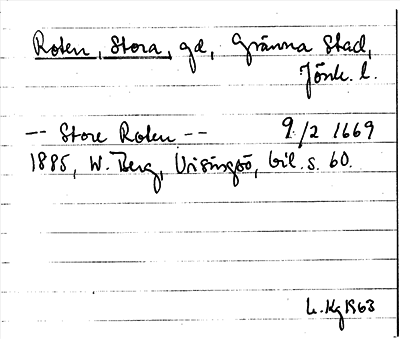 Roten, Stora, gd, Gränna Stad,
Jönk. l.
-- Store Roten -- 9/2 1669
1885, W. Berg, Visingsö, bil. s. 60.